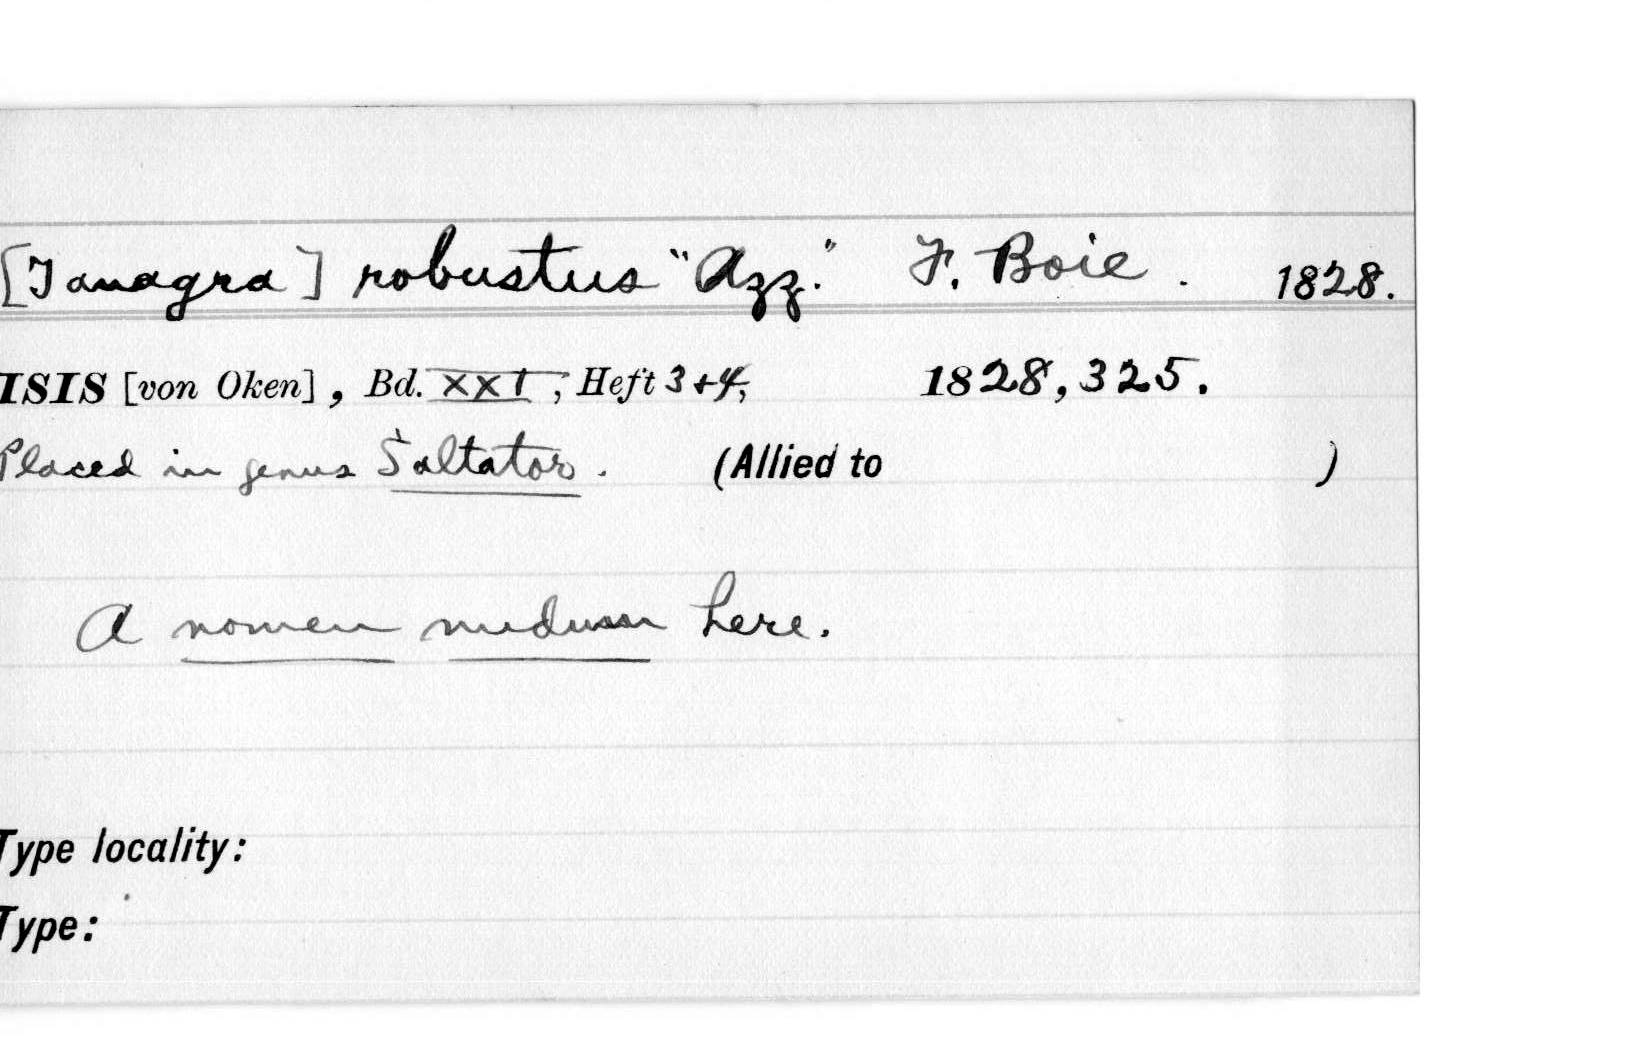 [Tanagra] robustus "Azz." F. Boie. 1828.
ISIS [von Oken], Bd. XXI, Heft 3+4, 1828, 325.
Placed in genus Saltator. (Allied to )
A nomen nudum here.
Type locality:
Type: